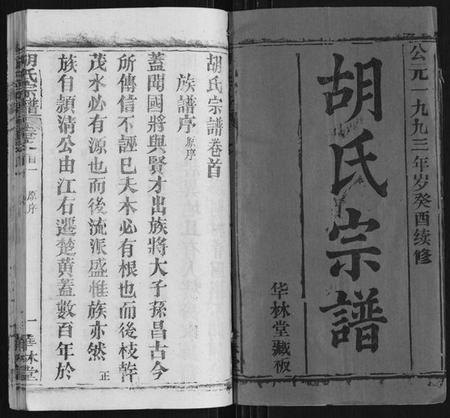 公元一九九三年岁癸酉续修
胡氏宗譜
华林堂藏板
胡氏宗譜卷首
族譜序 原序
蓋聞國將興賢才出族將大子孫昌古今
所傳信不誣巳夫木必有根也而後枝幹
茂水必有源也而後流派盛惟族亦然 正
族自額清公由江右遷楚黃蓋數百年於
胡氏宗譜 卷首 原序 一 華林堂